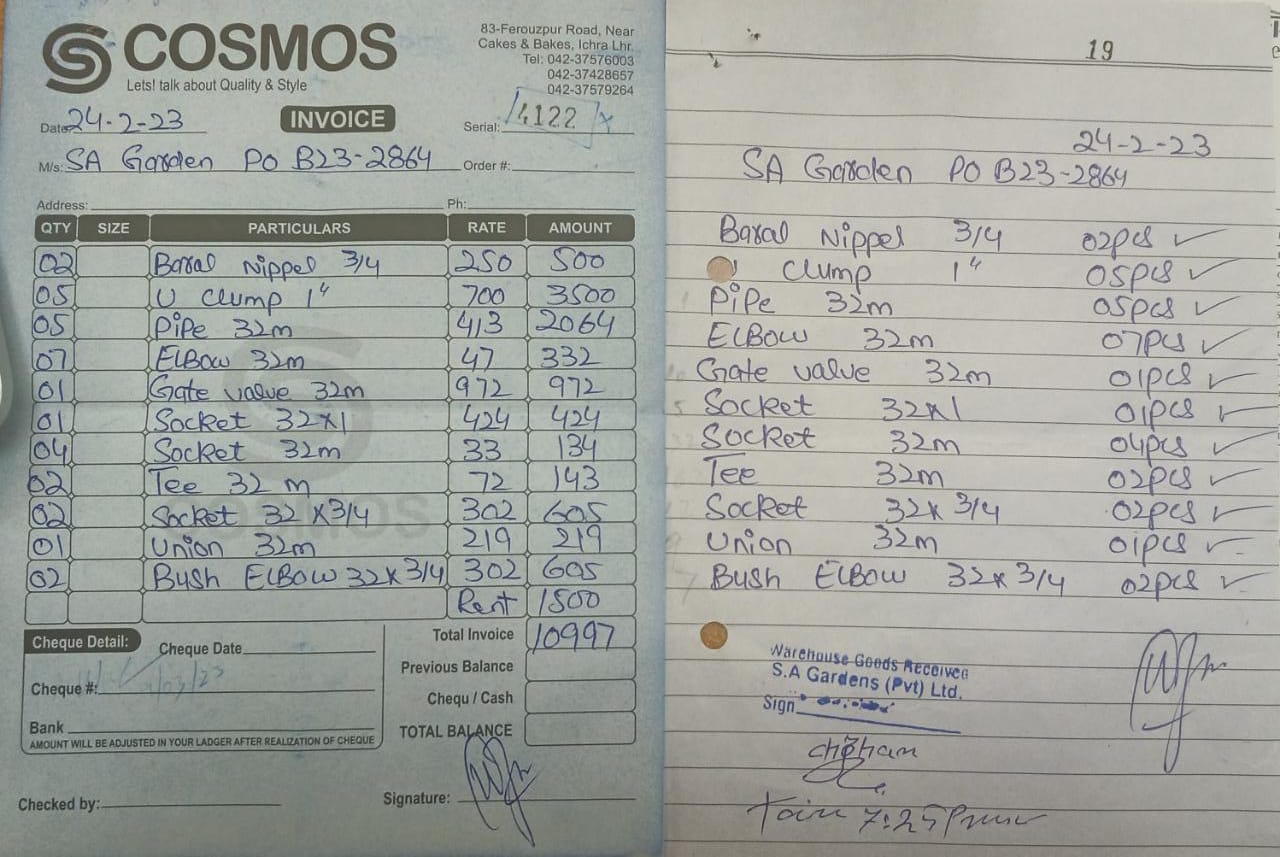 COSMOS
Lets! talk about Quality & Style
83-Ferouzpur Road, Near
Cakes & Bakes, Ichra Lhr.
Tel: 042-37576003
042-37428657
042-37579264
Date 24-2-23 INVOICE Serial: 4122
M/s: SA Garden PO B23-2864 Order #:
Address: Ph:
QTY SIZE PARTICULARS RATE AMOUNT
02 Baral Nippel 3/4 250 500
05 U Clump 1" 700 3500
05 Pipe 32m 413 2064
07 ElBow 32m 47 332
01 Gate value 32m 972 972
01 Socket 32x1 424 424
04 Socket 32m 33 134
02 Tee 32m 72 143
02 Socket 32x3/4 302 605
01 Union 32m 219 219
02 Bush ElBow 32x3/4 302 605
Rent 1500
Total Invoice 10997
Cheque Detail: Cheque Date
Previous Balance
Cheque #: /03/23
Chequ / Cash
Bank
TOTAL BALANCE
AMOUNT WILL BE ADJUSTED IN YOUR LADGER AFTER REALIZATION OF CHEQUE
Checked by: Signature:
COSMOS
19
24-2-23
SA Garden PO B23-2864
Baral Nippel 3/4 02pcs ✓
Clump 1" 05pcs ✓
Pipe 32m 05pcs ✓
ElBow 32m 07pcs ✓
Gate value 32m 01pcs ✓
Socket 32x1 01pcs ✓
Socket 32m 04pcs ✓
Tee 32m 02pcs ✓
Socket 32x3/4 02pcs ✓
Union 32m 01pcs ✓
Bush ElBow 32x3/4 02pcs ✓
Warehouse Goods Received
S.A Gardens (Pvt) Ltd.
Sign
7:25